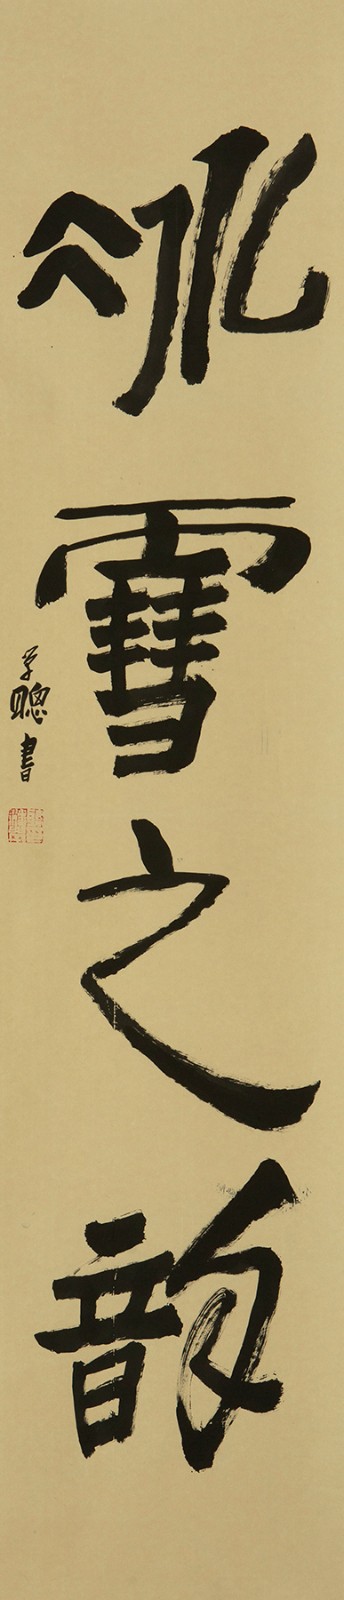 冰雪之韵
学聰書